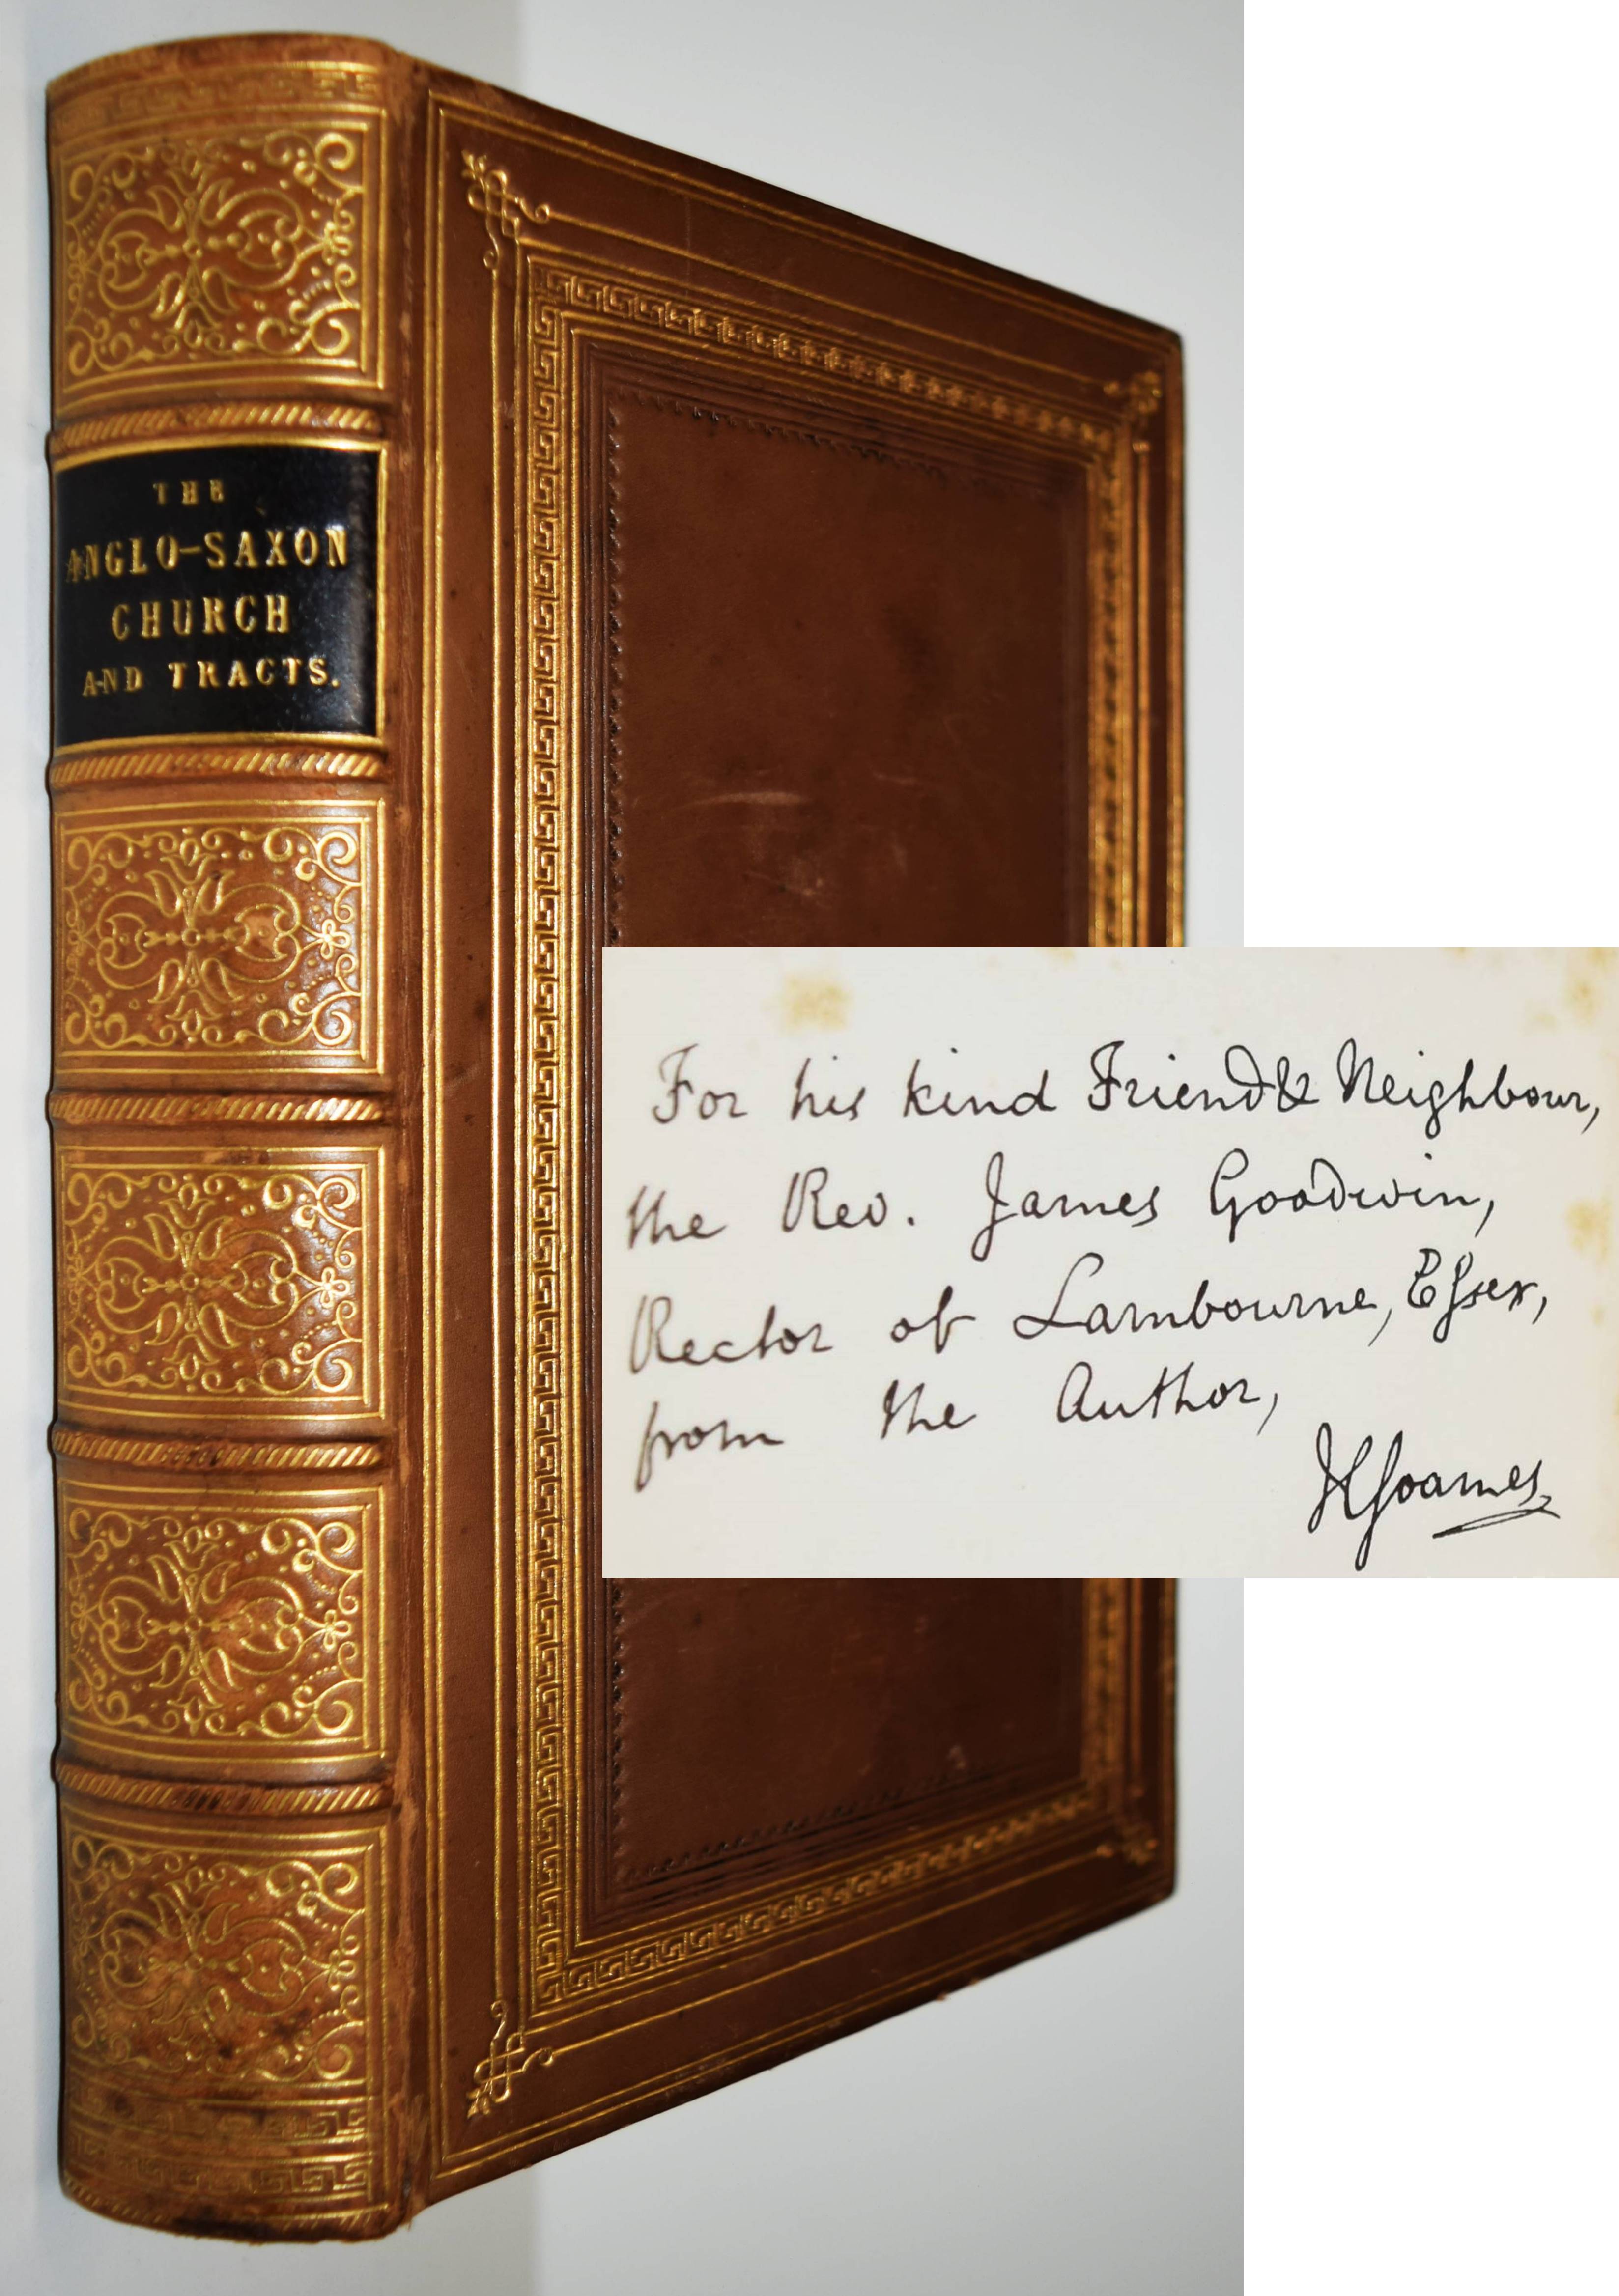 THE
ANGLO-SAXON
CHURCH
AND TRACTS.
For his kind Friend & Neighbour,
the Rev. James Goodwin,
Rector of Lambourne, Essex,
from the Author,
HSoames